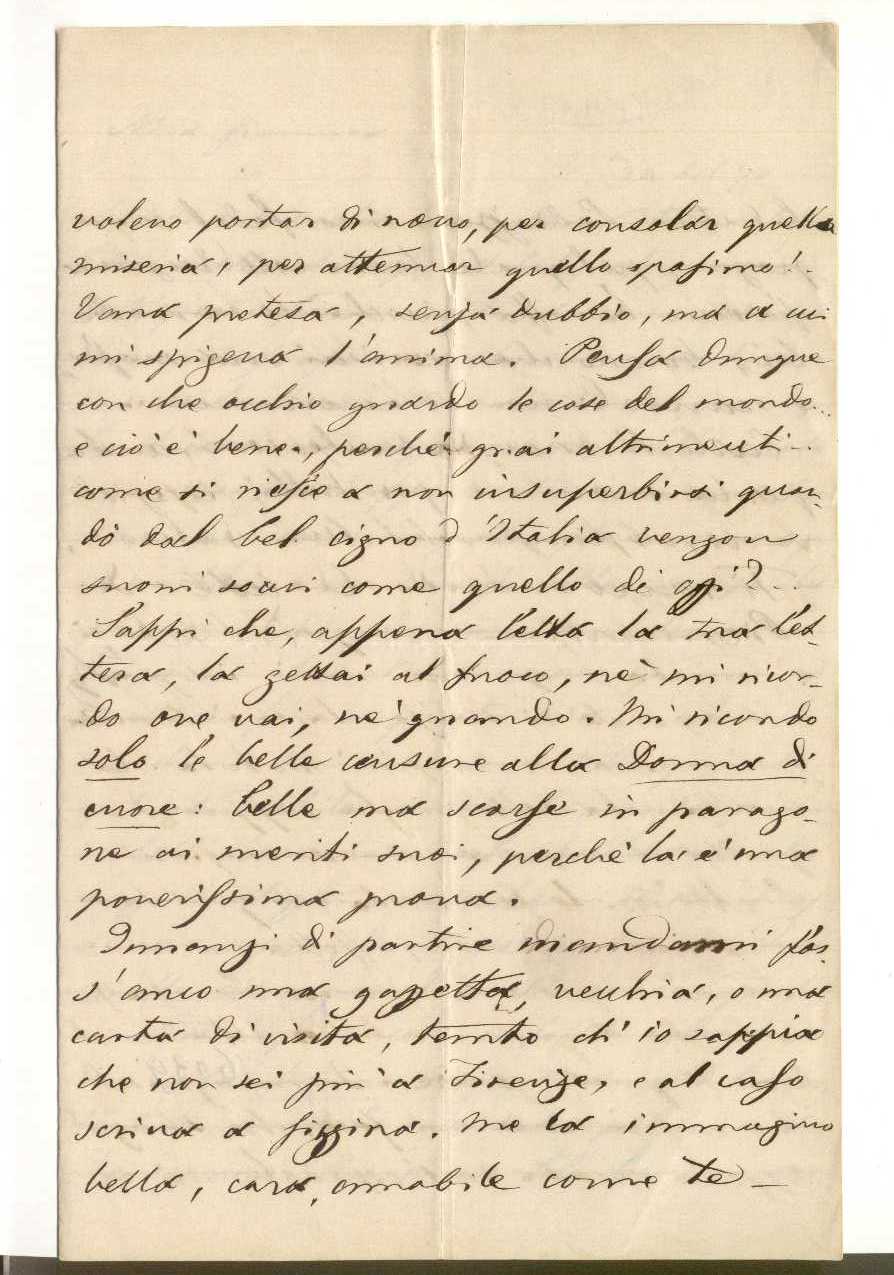 valevo portar di nuovo, per consolar quella
miseria, per attenuar quello spasimo!.
Vana pretesa, senza dubbio, ma a cui
mi spigeva l'anima. Pensa dunque
con che occhio guardo le cose del mondo...
e ciò è bene, perchè guai altrimenti..
come si riesce a non insuperbirsi quan-
do dal bel cigno d'Italia vengon
suoni soavi come quello di oggi?..
Sappi che, appena letta la tua let-
tera, la gettai al fuoco, nè mi ricor-
do ove vai, nè quando. Mi ricordo
solo le belle censure alla Donna di
cuore: belle ma scarse in parago-
ne ai meriti suoi, perchè la è una
poverissima prova.
Innanzi di partire mandami
una gazzetta, vecchia, o una
carta di visita, tanto ch'io sappia
che non sei più a Firenze, e al caso
scriva a Gigina. Me la immagino
bella, cara, amabile come te —